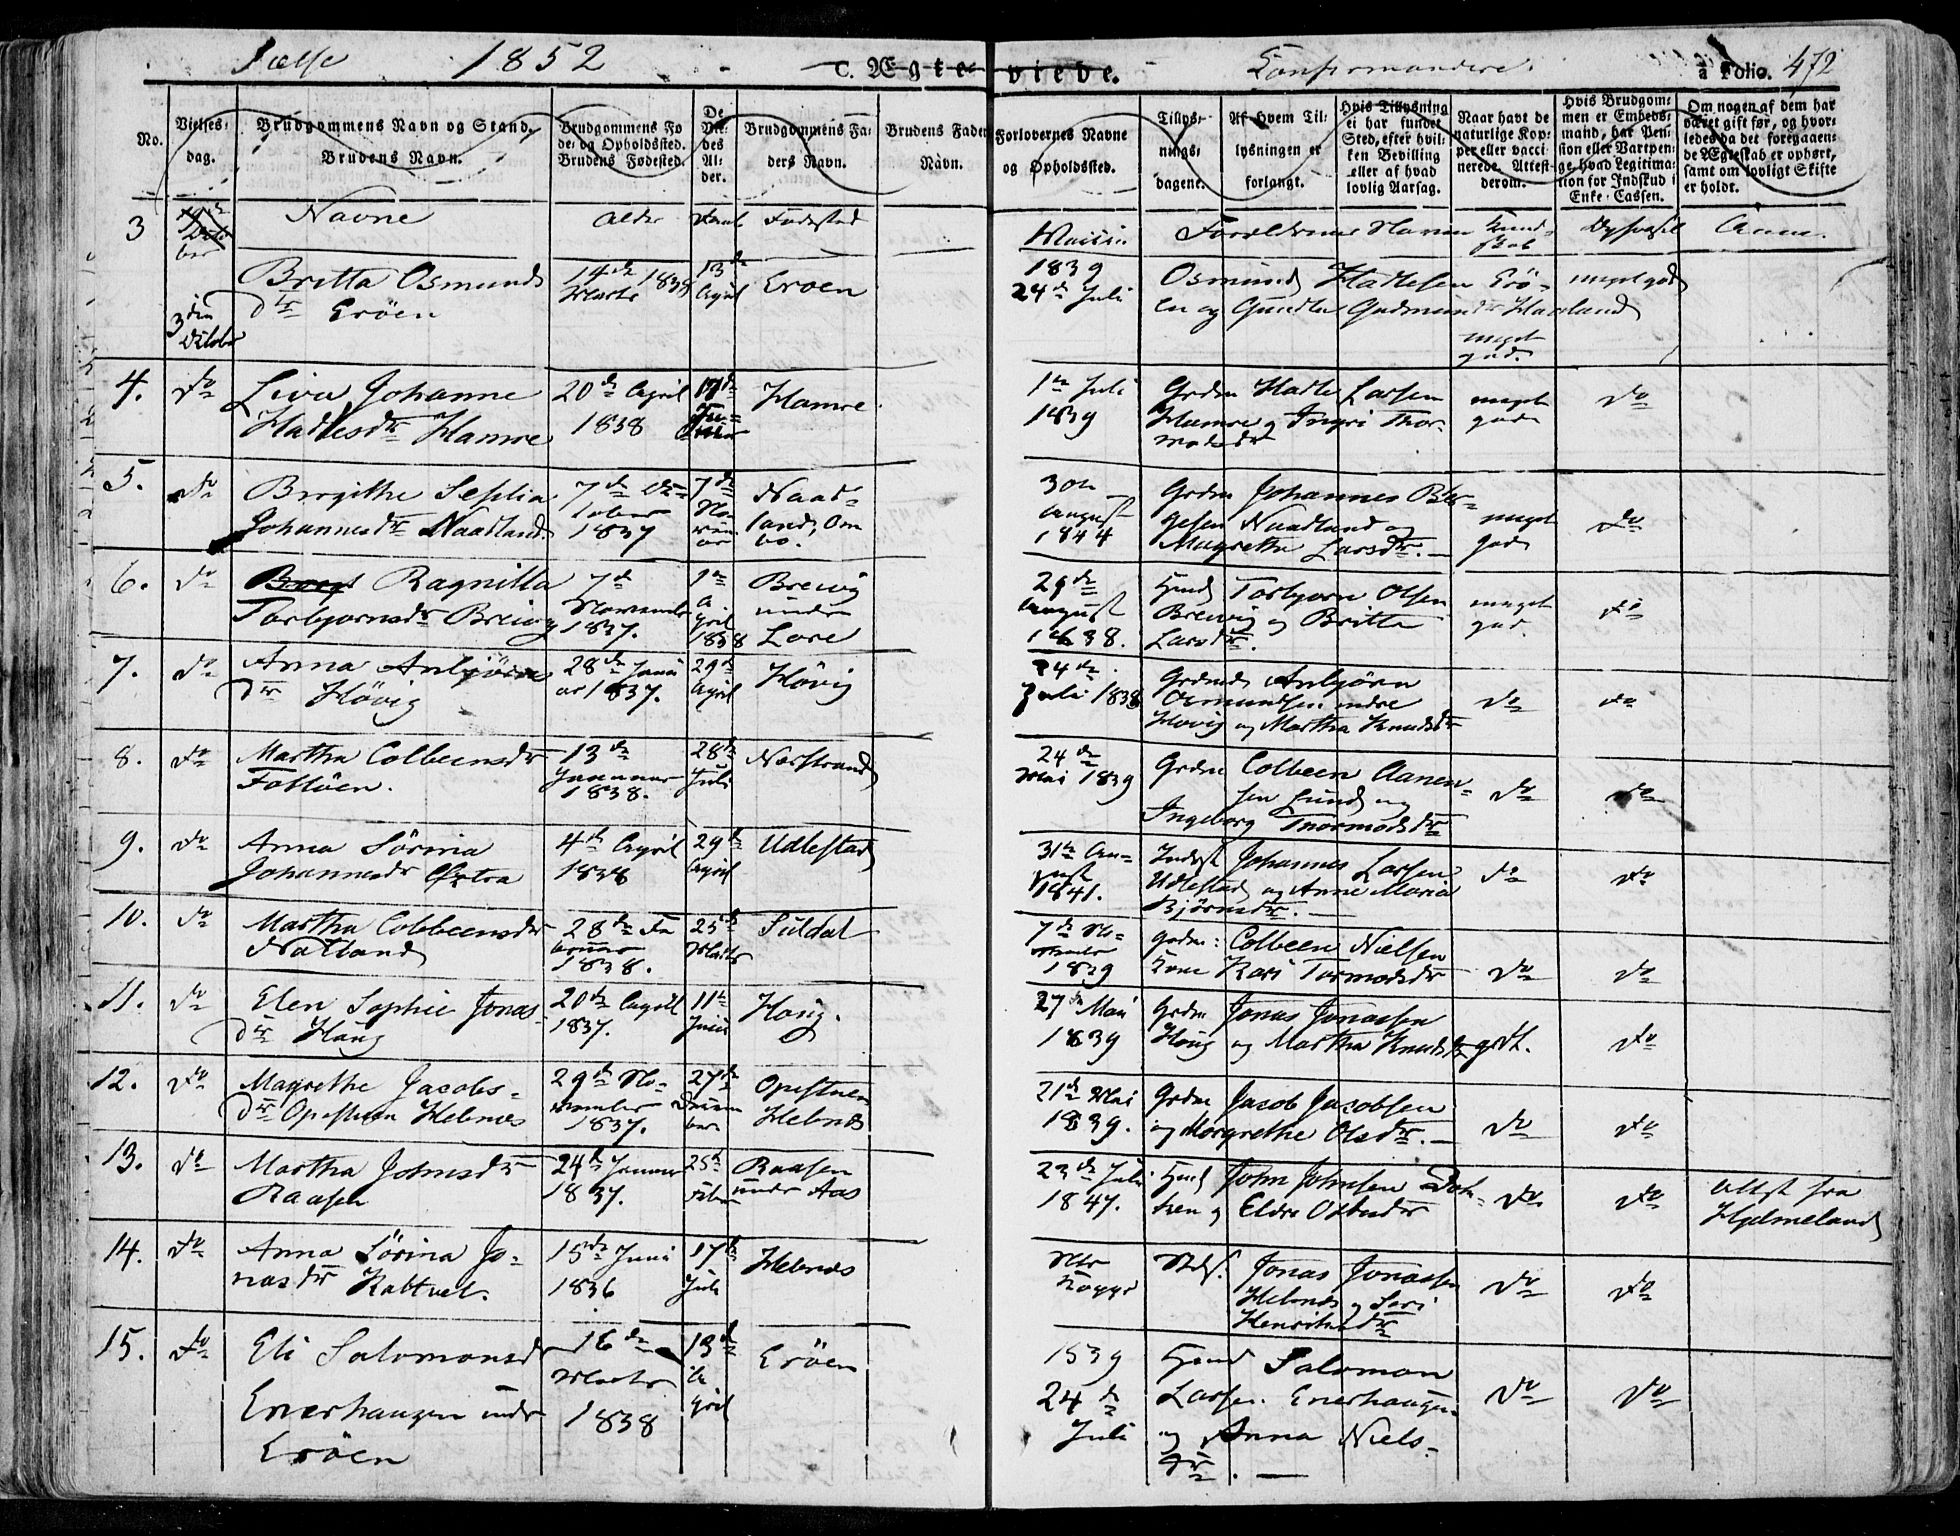 Jælsø 1852 C. Ægteviede. Confirmandere. a Folio. 472
No.
Vielses-
dag.
Brudgommens Navn og Stand.
Brudens Navn.
Brudgommens Fø
de- og Opholdssted.
Brudens Fødested.
De
Vie-
des
Al-
der.
Brudgommens Fa-
ders Navn.
Brudens Faders
Navn.
Forlovernes Navne
og Opholdssted.
Tillys-
nings-
dagene.
Af hvem Til-
lysningen er
forlangt.
Hvis Tillysning
ei har fundet
Sted, efter hvil-
ken Bevilling
eller af hvad
lovlig Aarsag.
Naar havt de
naturlige Kop-
per eller vacci-
nerede. Attest
derom.
Hvis Brudgom-
men er Embeds-
mand, har Pen-
sion eller Vartpen-
ge, hvad Legitima-
tion for Indskud i
Enke-Cassen.
Om nogen af dem har
været gift før, og hvor-
ledes da det foregaaen-
de Ægteskab er ophørt,
samt om lovligt Skifte
er holdt.
Navne Alder Daab Fødested
Vaccin Forældrenes Navne Kund-
skab Anm.
3 den
October
Britta Osmunds
dr Erøen
14de Marts 1838
13de April
Erøen
1839
24de Juli
Osmund Hadlesen Erø-
en og Gundla Gudmunds dr Haaland
meget
god
meget god
4. do
Liva Johanne
Hadlesdr Hamre
20de April
1838
Hamre
1te Juli
1839
Grdm Hadle Larsen
Hamre og Ingri Thor-
modsdr
meget
god
do
5. do
Birgithe Sephia
Johannesdr Naadland
7de Oc-
tober
1837
7de
No-
vem-
ber
Naad-
land, Om
bo.
30te
August
1844
Grdm Johannes Bir-
gesen Naadland og
Magretha Larsdr. -
meget
god
do
6. do
Ragnilla
Torbjørnsdr Breivig
7de
November
1837.
1te
A
pril
1838
Breivig
under
Lore
29de
August
1838.
Hmd Torbjørn Olsen
Breivig og Britta
Larsdr.
meget
god.
do
7. do
Anna Anbjørns
dr Høvig
28de Janu
ar 1837.
29de
April
Høvig
24de
Juli 1838
Grdmd Anbjørn
Osmundsen
Høvig og Martha Knudsdr
do
do
8. do
Martha Colbeensdr
Fattøen.
13de
Januar
1838.
28de
Juli
Nærstrand
24de
Mai 1839
Grdm Colbeen Aanen-
sen Lund og
Ingeborg Thormodsdr
do
do
9. do
Anna Sørina
Johannesdr Østra
4de April
1838
29de
April
Udlestad
31te Au-
gust
1841.
Indst Johannes Larsen
Udlestad og Anne Maria
Bjørnsdr. -
do
do
10. do
Martha Colbeensdr
Natland
28de Fe
bruar
1838.
25de
Marts
Suldal
7de No-
vember
1839
Grdm: Colbeen Nielsen
Kone Kari Tormodsdr
do
do
11. do
Elen Sophie Jonas-
dr Houg
20de April
1837.
11te
Juni
Houg.
27de Mai
1839
Grdm Jonas Jonassen
Houg og Martha Knudsdr
godt.
do
12. do
Magrethe Jacobs-
dr Opesteen Hebnes
29de No-
vember
1837.
27de
Decem
ber
Opesteen
Hebnes
21de Mai
1839.
Grdm Jacob Jacobsen
og Margrethe Olsdr. -
do
do
13. do
Martha Johnsdr
Raasen
24de Januar
1837.
25de
Febr
Raasen
under Aas
23de Juli
1847.
Hmd John Johnsen
og Eldre
do
do
Attst fra
Hjelmeland
14. do
Anna Sørina Jo-
nasdr Kattvet.
15de Juni
1836
17de
Juli
Hebnes
Ntr
Kopper
Jonas Jonassen
Hebnes og Siri
Henriksdr
do
do
15. do
Eli Salomonsdr
Enerhaugen under
Erøen
16de
Marts
1838
13de
A
pril
Erøen
1839
24de
Juli
Hmd Salomon
Larsen Enerhaugen
og Anna Niels-
dr. -
do
do